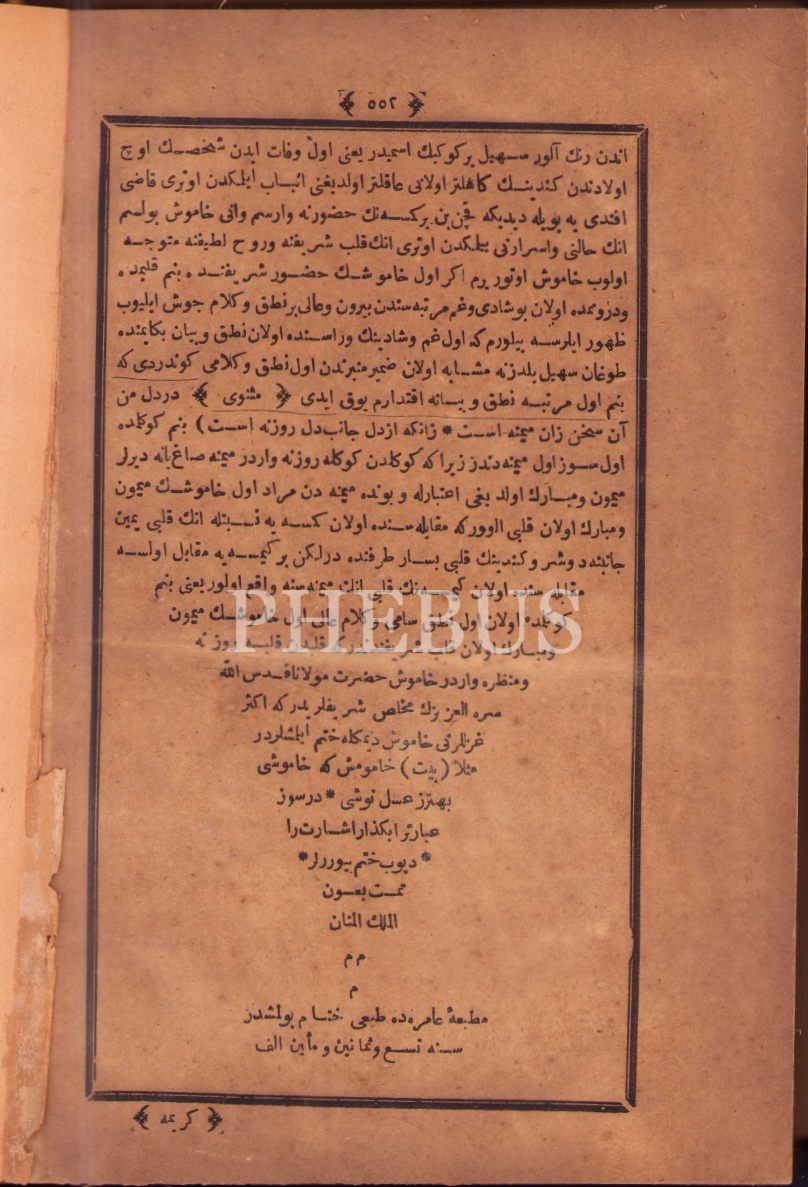 ﴿ ٥٥٢ ﴾
اندن رنك آلور سهيل بر كوكبك اسميدر يعنى اول وفات ايدن شخصك اوچ
اولادندن كندينك كاهلتر اولانى عاقلتر اولديغنى اثبات ايلمكدن اوترى قاضى
افندى يه بويله ديديكه قچن بن بر كسه نك حضورنه وارسم وانى خاموش بولسم
انك حالنى واسرارنى بيلمكدن اوترى انك قلب شريفنه وروح لطيفنه متوجه
اولوب خاموش اوتورم اكر اول خاموشك حضور شريفنده بنم قلبمده
ودرونمده اولان بوشادى وغم مرتبه سندن بيرون وعالى بر نطق وكلام جوش ايليوب
ظهور ايلرسه بيلورم كه اول غم وشادينك وراسنده اولان نطق وبيان بكا يمنده
طوغان سهيل يلدزنه مشابه اولان ضمير منيرندن اول نطق وكلامى كوندردى كه
بنم اول مرتبه نطق وبيانه اقتدارم يوق ايدى ﴿ مثنوى ﴾ در دل من
آن سخن زان ميمنه است * زانكه از دل جانب دل روزنه است ) بنم كوكلمده
اول سوز اول ميمنه دندر زيرا كه كوكلدن كوكله روزنه واردر ميمنه صاغ يانه ديرلر
ميمون ومبارك اولديغى اعتبارله وبونده ميمنه دن مراد اول خاموشك ميمون
ومبارك اولان قلبى الووركه مقابله سنده اولان كمسه يه نسبتله انك قلبى يمين
جانبنه دوشر وكندينك قلبى يسار طرفنده در لكن بر كيمسه يه مقابل اولسه
مقابله سنده اولان كيمسه نك قلبى انك ميمنه سنه واقع اولور يعنى بنم
كوكلمده اولان اول نطق سامى وكلام عالى اول خاموشك ميمون
ومبارك اولان قلب شريفندندر كه قلبدن قلبه روزنه
ومنظره واردر خاموش حضرت مولانا قدس الله
سره العزيزك مخلص شريفلريدر كه اكثر
غزللرنى خاموش ديمكله ختم ايلمشلردر
مثلا ( بيت ) خاموش كه خاموشى
بهتر ز عسل نوشى * در سوز
عبارترا بكذار اشارت را
* ديوب ختم بيوررلر *
تمت بعون
الملك المنان
م م
م
مطبعۀ عامره ده طبعى ختام بولمشدر
سنه تسع وثمانين ومأتين الف
﴿ كريمه ﴾
PHEBUS